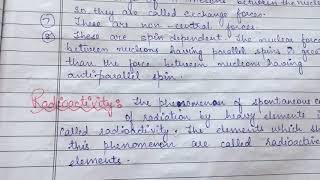 of π mesons between the nucleo
So they are called exchange forces.
(7) These are non-central forces.
(8) These are spin dependent. The nuclear force
between nucleons having parallel spins is grea
than the force between nucleons having
anti-parallel spin
Radioactivity: The phenomenon of spontaneous e
of radiation by heavy elements i
called radioactivity. The elements which sh
this phenomenon are called radioactive
elements.